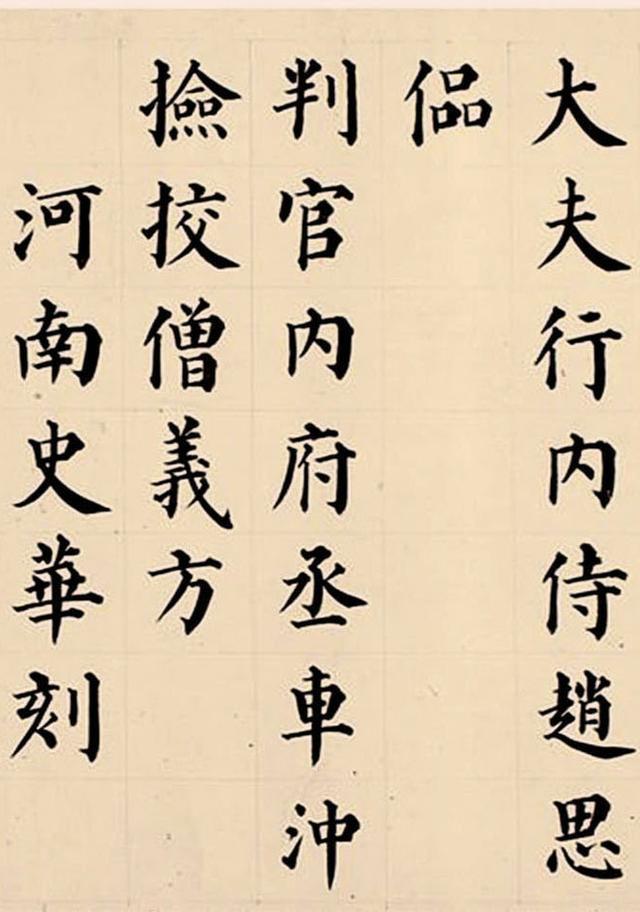 大夫行内侍趙思
偘
判官内府丞車沖
撿挍僧義方
河南史華刻